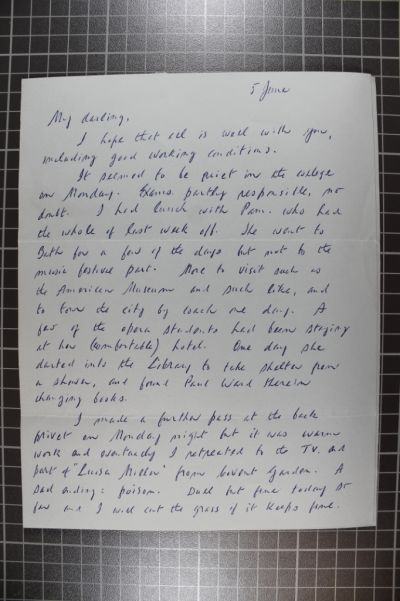 5 June
My darling,
I hope that all is well with you,
including good working conditions.
It seemed to be quiet in the college
on Monday. Exams partly responsible, no
doubt. I had lunch with Pam. who had
the whole of last week off. She went to
Bath for a few of the days but not to the
music festival part. More to visit such as
the American Museum and such like, and
to tour the city by coach one day. A
few of the opera students had been staying
at her (comfortable) hotel. One day she
darted into the Library to take shelter from
a shower, and found Paul Ward therein
changing books.
I made a further pass at the back
privet on Monday night but it was warm
work and eventually I retreated to the TV. and
part of "Luisa Miller" from Covent Garden. A
sad ending: poison. Dull but fine today so
far and I will cut the grass if it keeps fine.